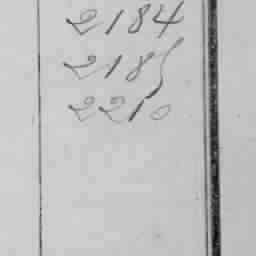 2184
2185
2210